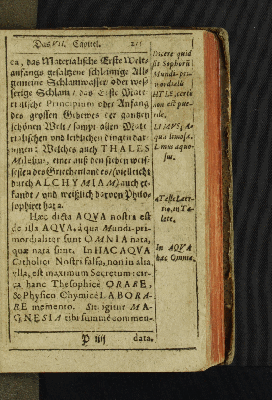 Das VII. Capitel. 231
ca, das Materialische Erste Welt-
anfangs gesaltzene schleimige All-
gemeine Schlammwasser/ oder wes-
serige Schlam/ das Erste Mate-
rialische Principium oder Anfang
des grossen Gebewes der gantzen
schönen Welt/ sampt allen Mate-
rialischen und leiblichen dingen dar-
innen: Welches auch THALES
Milesius, einer auß den sieben weis-
sesten des Griechenlandes/(vielleicht
durch ALCHYMIAM) auch er-
fandt/ und weißlich darvon Philo-
sophiret hat a.
Hæc dicta AQVA nostra est
de illa AQVA, à qua Mundi pri-
mordialiter sunt OMNIA nata,
quæ nata sunt. In HAC AQVA
Catholica Nostri falsa, non in alia
ulla, est maximum Secretum: cir-
ca hanc Theosophicè ORARE,
& Physico Chymicè LABORA-
RE memento. Sit igitur MA-
GNESIA tibi summè commen-
P iiij data.
Dicere quid
sit Sophorũ
Mundi pri-
mordialis
HYLE, certè
non est pue-
rile.
LIMVS; A-
qua limosa.
Limus aquo-
sus.
a Teste Laer-
tio, in Ta-
lete.
In AQVA
hac Omnia.